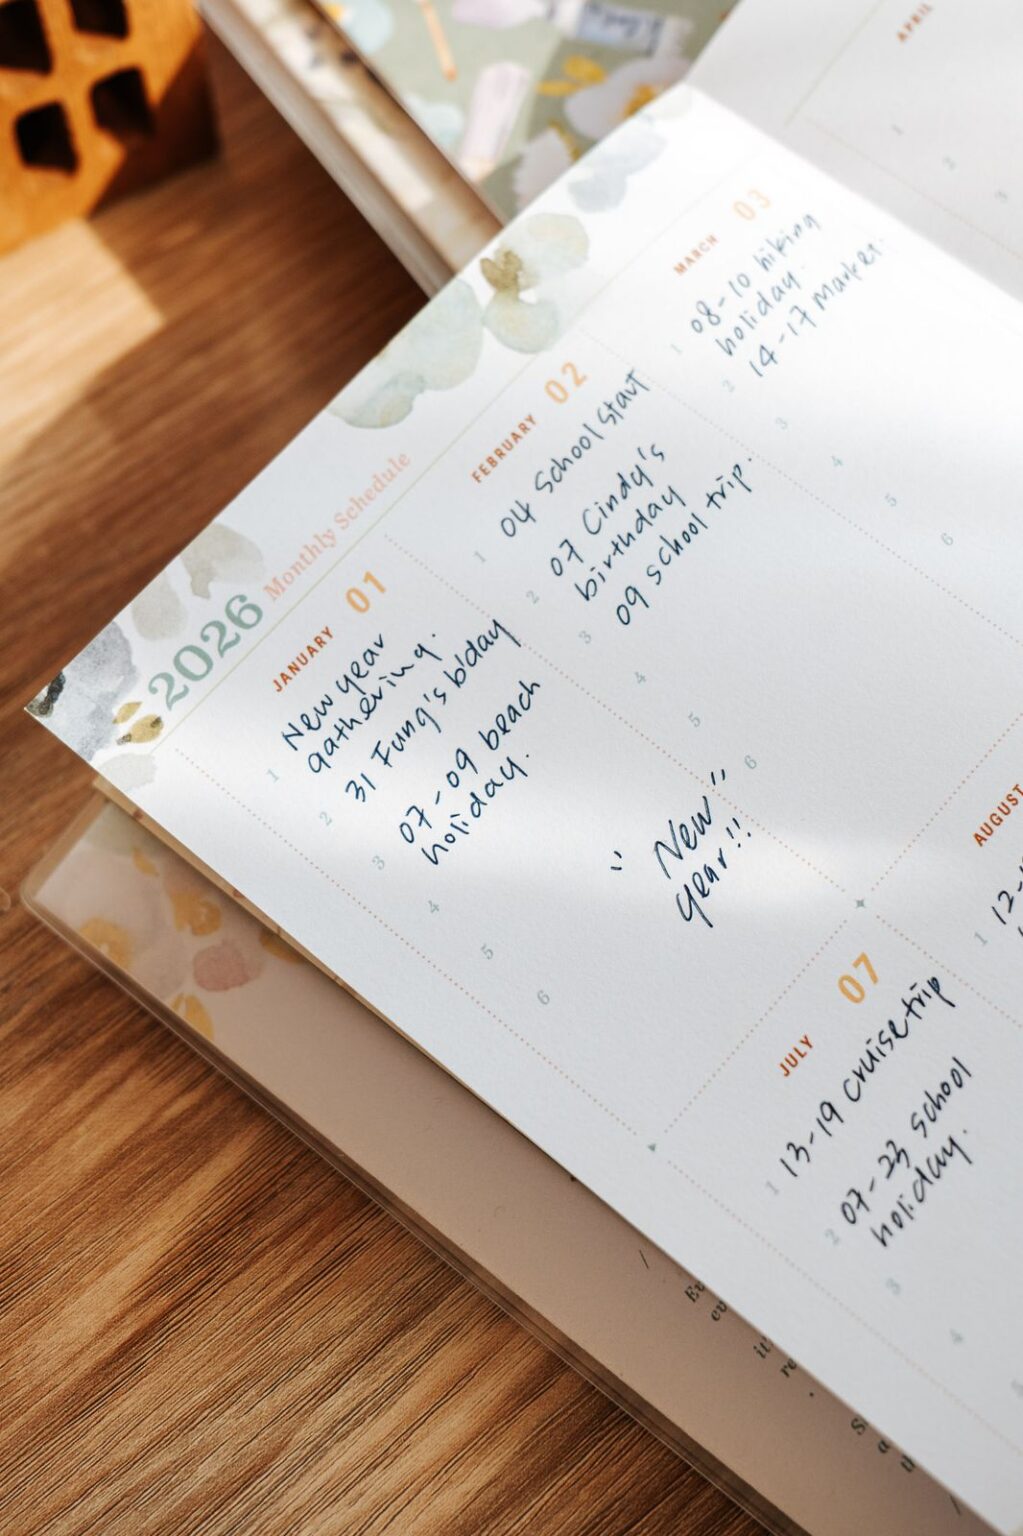 2026 Monthly Schedule
JANUARY 01
New year
gathering.
31 Fung's b'day
07-09 beach
holiday.
1
2
3
4
5
6
FEBRUARY 02
04 School start
07 Cindy's
birthday
09 school trip.
1
2
3
4
5
6
MARCH 03
08-10 hiking
holiday.
14-17 Market.
1
2
3
4
5
6
APRIL
1
2
3
"New"
year!!
JULY 07
13-19 cruise trip
07-23 school
holiday.
1
2
3
4
AUGUST
12-
1